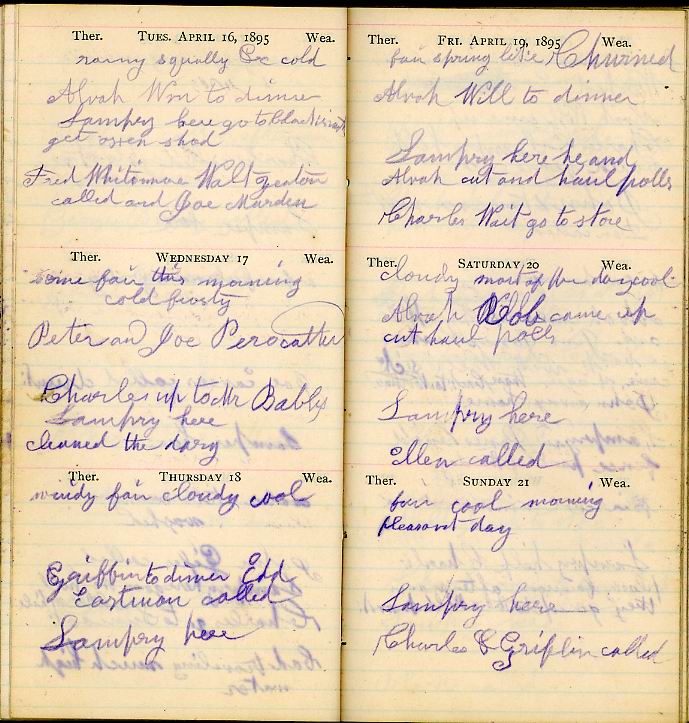 Ther. TUES. APRIL 16, 1895 Wea.
rainy squally & cold
Alvah Wm to dinner
Lampry here go to
get oxen shod
Fred Whitimore Walt
called and Joe Marden
Ther. WEDNESDAY 17 Wea.
some fair this morning
cold frosty
Peter and Joe
Charles up to Mr Bables
Lampry here
cleaned the dary
Ther. THURSDAY 18 Wea.
windy fair cloudy cool
Griffin to dinner Edd
Eastman called
Lampry here
Ther. FRI. APRIL 19, 1895 Wea.
fair spring like Churned
Alvah Will to dinner
Lampry here he and
Alvah cut and haul polls
Charles Wait go to store
Ther. SATURDAY 20 Wea.
cloudy most of the day cool
Alvah Rob came up
cut haul polls
Lampry here
Ellen called
Ther. SUNDAY 21 Wea.
fair cool morning
pleasant day
Lampry here
Charles C Griffin called